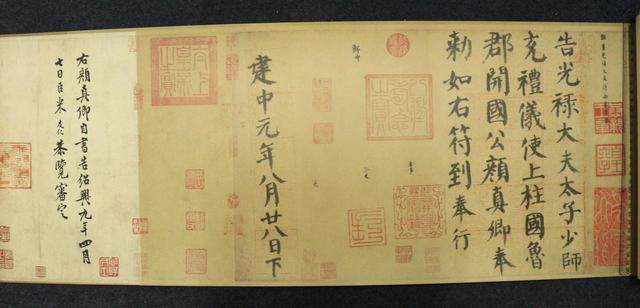 告光祿大夫太子少師
充禮儀使上柱國魯
郡開國公顏真卿奉
勅如右符到奉行
郎中
建中元年八月廿八日下
右顏真卿自書告紹興九年四月
七日臣米友仁恭覽審定